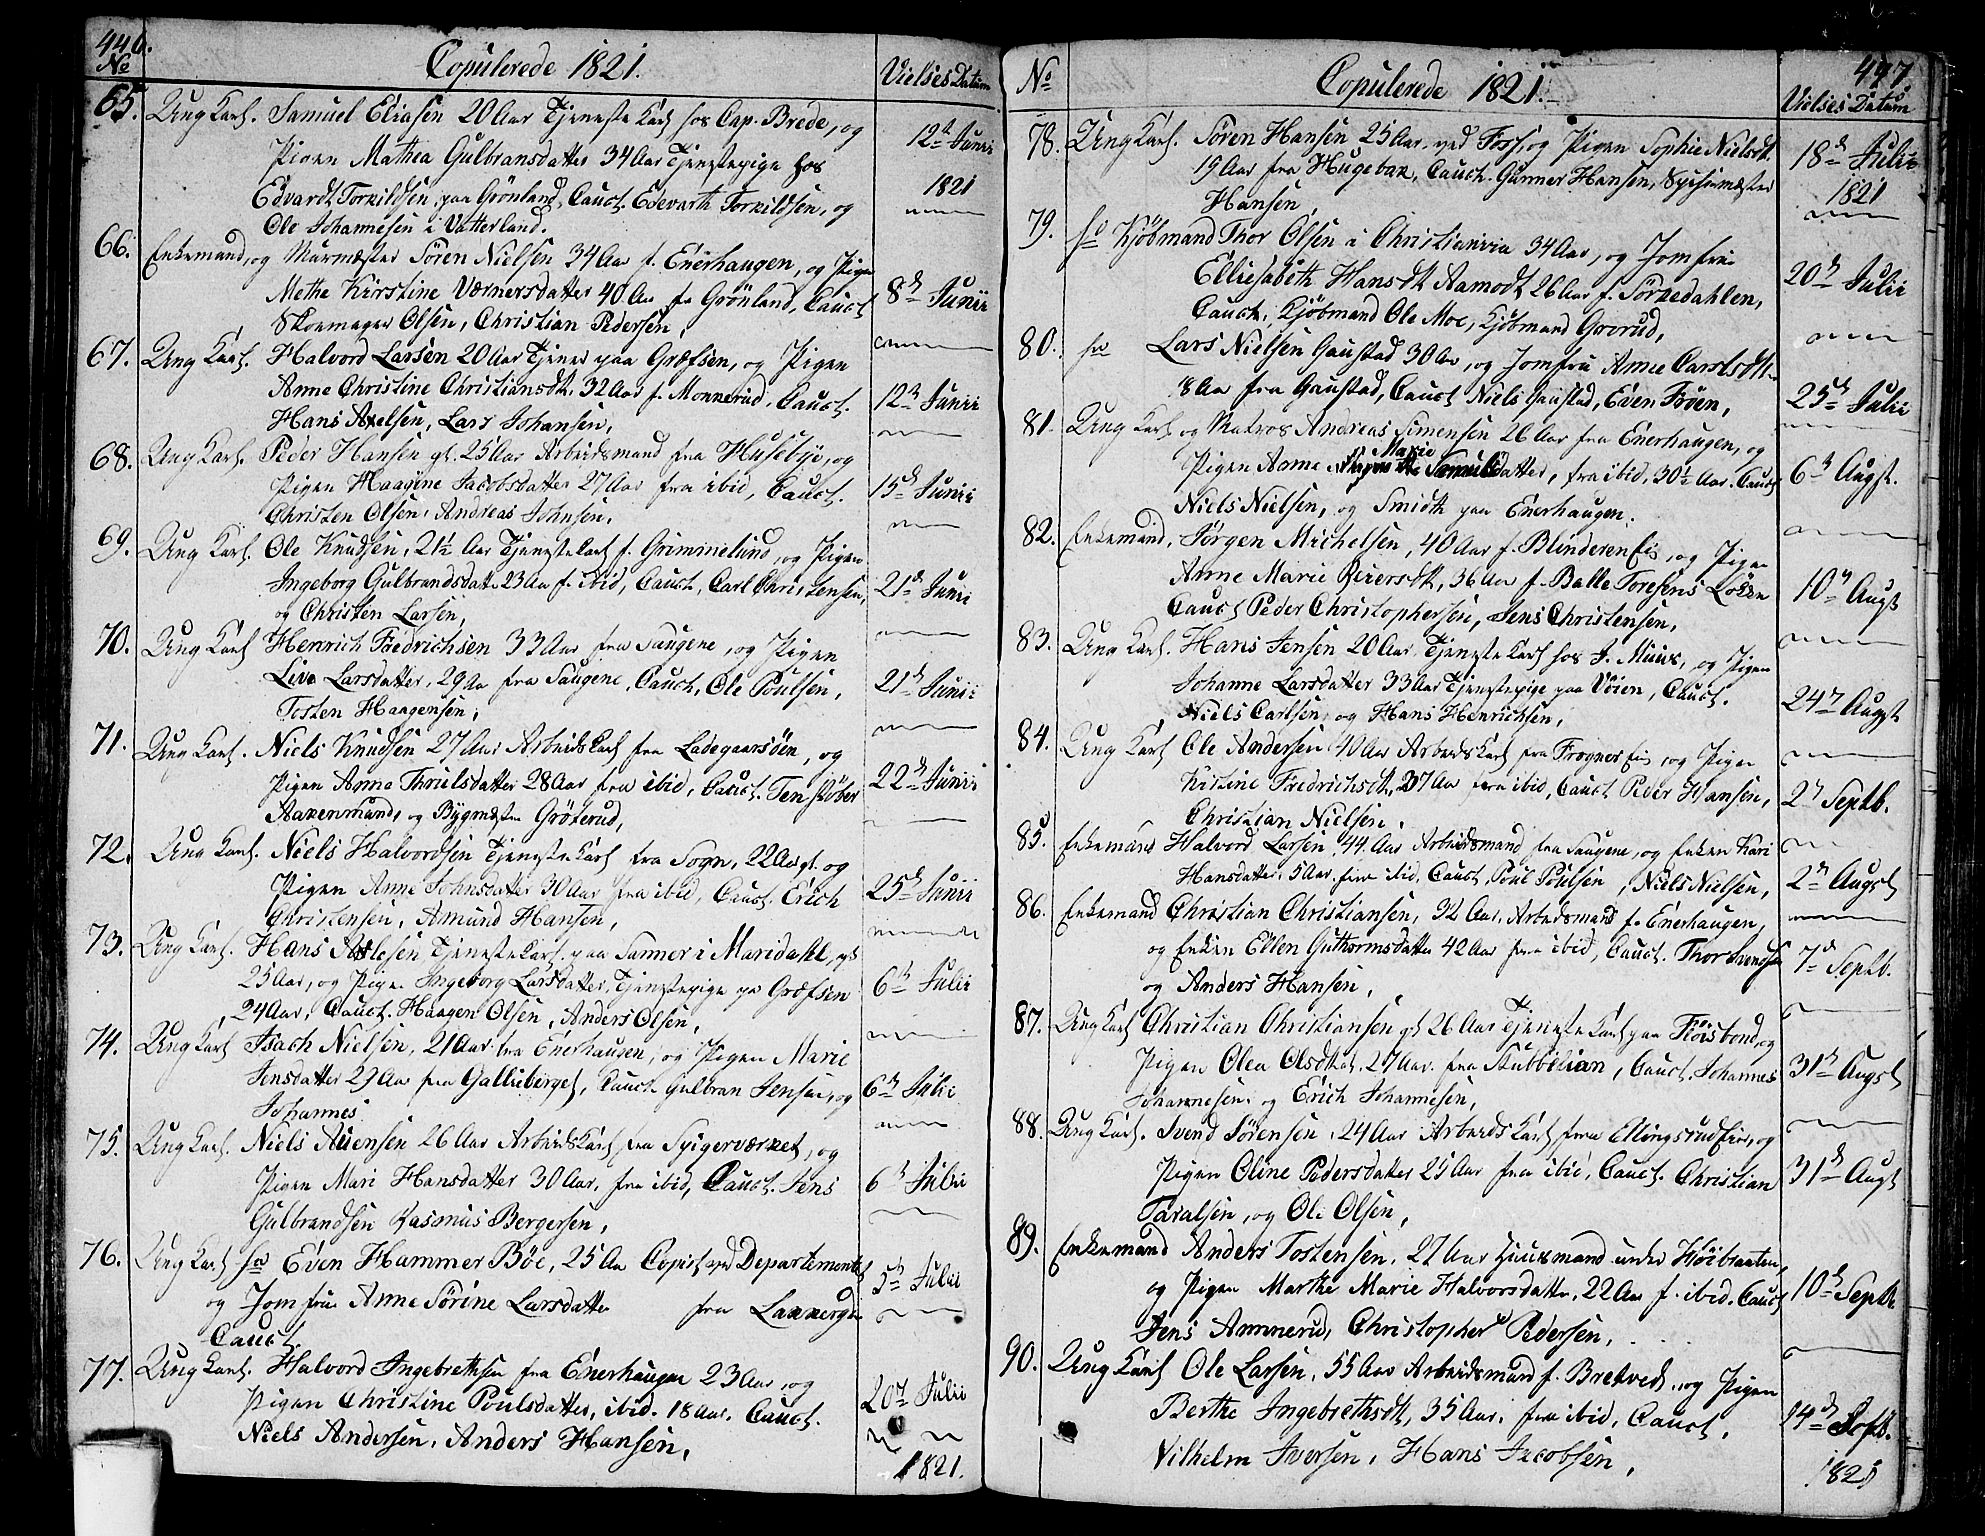 446.
No Copulerede 1821. Vielses Datum
65. Ung Karl. Samuel Eliasen 20 Aar Tjeneste Karl hos Cap. Brede, og
Pigen Mathea Gulbransdatter 34 Aar Tjenestepige hos
12te Junii
Edvardt Torkildsen, paa Grønland, Cauct. Edevarth Torkildsen, og
1821
Ole Johannesen i Vatterland.
66. Enkemand, og Murmæster Søren Nielsen 34 Aar f. Enerhaugen, og Pigen
Methe Kirstine Værnersdatter 40 Aar fr Grönland, Cauct
8de Junii
Skomager Olsen, Christian Pedersen,
67. Ung Karl. Halvord Larsen 20 Aar Tjener paa Græfsen, og Pigen
Anne Christine Christiansdtr. 32 Aar f. Monnerud, Cauct.
12te Junii
Hans Axelsen, Lars Johansen,
68. Ung Karl. Peder Hansen gl. 25 Aar Arbeidsmand fra Husebye, og
Pigen Haagine Jacobsdatter 27 Aar fra ibid, Cauct.
15de Junii
Christen Olsen, Andreas Johnsen,
69. Ung Karl. Ole Knudsen, 21½ Aar Tjenestekarl f. Grimmelund, og Pigen
Ingeborg Gulbrandsdatt. 23 Aar f. ibid, Cauct, Carl Christensen,
21de Junii
og Christen Larsen,
70. Ung Karl Henrich Fredrichsen 33 Aar fra Saugene, og Pigen
Live Larsdatter, 29 Aar fra Saugene, Cauct, Ole Poulsen,
21de Junii
Tosten Haagensen,
71. Ung Karl. Niels Knudsen 27 Aar Arbeids Karl fra Ladegaarsöen, og
Pigen Anna Thrulsdatter 28 Aar fra ibid, Cauct.
22de Junii
og Bygmester Gröterud,
72. Ung Karl. Niels Halvordsen Tjeneste Karl fra Sogn, 22 Aar gl. og
Pigen Anne Johnsdatter 30 Aar fra ibid, Cauct. Erich
25de Junii
Christensen, Amund Hansen,
73. Ung Karl. Hans Tjenestekarl paa Sanner i Maridahl, gl
25 Aar, og Pigen Ingeborg Larsdatter, Tjenestepige pa Græfsen
6te Julii
24 Aar, Cauct. Haagen Olsen, Anders Olsen,
74. Ung Karl Isach Nielsen, 21 Aar fra Enerhaugen, og Pigen Marie
Jensdatter 29 Aar fra Gallieberget, Cauct. Gulbran Jensen, og
6te Julii
Johannes
75. Ung Karl. Niels Auensen 26 Aar Arbeids Karl fra Spigerværket, og
Pigen Mari Hansdatter 30 Aar, fra ibid, Cauct. Jens
6te Julii
Gulbrandsen Rasmus Bergersen,
76. Ung Karl hr Even Hammer Böe, 25 Aar Copist ved Departementet
og Jomfrue Anne Sörine Larsdatter fra
5te Julii
Cauct
77. Ung Karl. Halvord Ingebrethsen fra Enerhaugen 23 Aar, og
Pigen Christine Poulsdatter, ibid. 18 Aar. Cauct.
20de Julii
Niels Andersen, Anders Hansen,
1821.
447
No Copulerede 1821. Vielses Datum
78. Ung Karl. Sören Hansen 25 Aar, ved Foss, og Pigen Sophie Nielsdt.
19 Aar fra Hugebak, Cauct. Gunner Hansen, Spisemæster
18de Julii
Hansen,
1821
79. hr Kjöbmand Thor Olsen i Christiania 34 Aar, og Jomfrue
Elliesabeth Hansdt Aamodt 26 Aar f. Sörkedahlen,
20de Julii
Cauct. Kjöbmand Ole Moe, Kjöbmand Grorud,
80. hr Lars Nielsen Gaustad 30 Aar, og Jomfrue Anne Carlsdtt.
18 Aar fra Gaustad, Cauct Niels Gaustad, Even Fröen,
25de Julii
81. Ung Karl og Matros Andreas Simensen 26 Aar fra Enerhaugen, og
Marie
Pigen Anne datter, fra ibid, 30½ Aar. Cauct
6te Augst.
Niels Nielsen, og Smidth paa Enerhaugen.
82. Enkemand, Jörgen Michelsen, 40 Aar f. Blinderen Eie, og Pigen
Anne Marie Reiersdt, 36 Aar f. Balle Toresens Löken
10de Augst
Cauct Peder Christophersen, Jens Christensen,
83. Ung Karl. Hans Jensen 20 Aar Tjeneste Karl hos J. Muus, og Pigen
Johanne Larsdatter 33 Aar Tjenestepige paa Vöien, Cauct.
24de Augst
Niels Carlsen, og Hans Henrichsen,
84. Ung Karl Ole Andersen 40 Aar Arbeids Karl fra Frogner Eie, og Pigen
Kistine Fredrichsdt, 37 Aar fra ibid, Cauct Peder Hansen,
2de Septb.
Christian Nielsen,
85. Enkemand Halvord Larsen, 44 Aar Arbeidsmand fra Saugene, og Enken Kari
Hansdatter, 5 Aar. fra ibid, Cauct, Poul Poulsen, Niels Nielsen,
2de Augst
86. Enkemand Christian Christiansen, 32 Aar, Arbeidsmand f. Enerhaugen,
og Enken Ellen Guthormsdatter 42 Aar fra ibid, Cauct. Thor Svendsen
7de Septb.
og Anders Hansen,
87. Ung Karl Christian Christiansen gl 26 Aar Tjeneste Karl paa Flöisbond, og
Pigen Olea Olsdtter, 27 Aar. fra Stubbelian, Cauct. Johannes
31te Augst
Johannesen, og Erich Johannesen,
88. Ung Karl. Svend Sörensen, 24 Aar Arbeids Karl fra Ellingsrud Eie, og
Pigen Oline Pedersdatter 25 Aar fra ibid, Cauct. Christian
31te Augst
Taralsen, og Ole Olsen,
89. Enkemand Anders Tostensen, 27 Aar Huusmand under Höibraaten,
og Pigen Marthe Marie Halvorsdatter, 22 Aar f. ibid. Cauct
10de Septb.
Jens Ammerud, Christopher Pedersen,
90. Ung Karl Ole Larsen, 55 Aar Arbeidsmand f. Bredtvedt, og Pigen
Berthe Ingebrethsdt, 35 Aar, fra ibid, Cauct,
14de Septb.
Vilhelm Iversen, Hans Jacobsen,
1821